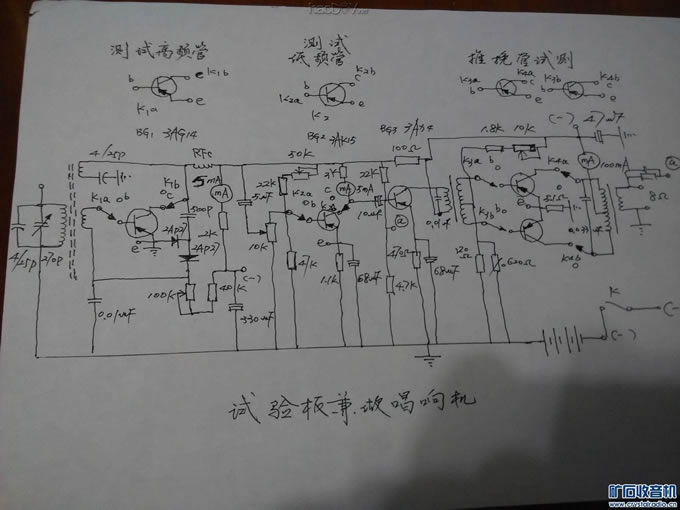 测试高频管
测试
低频管
推挽管试测
b
c K1b
K1a
e
K2b
c
K2a
e
K2
K3a
b
K3b
K4b
c
e
(-)
47uF
BG1 3AG14
BG2 3AX15
BG3
100Ω
1.8K
10K
4/25p
RFC
50K
5mA
mA
22K
2K
22K
5mA
mA
100mA
K1a
b
K1b
c
500p
5uF
K2a
b
c
10uF
a
0.01uF
K3a
K3b
K4a
K4b
8Ω
a
e
2AP27
2AP27
2K
10K
e
4/25p
270p
100K
(-)
47K
1.1K
68uF
470Ω
4.7K
68uF
0.01uF
330uF
K
(-)
试验板兼做唱响机
矿石收音机
www.crystalradio.cn